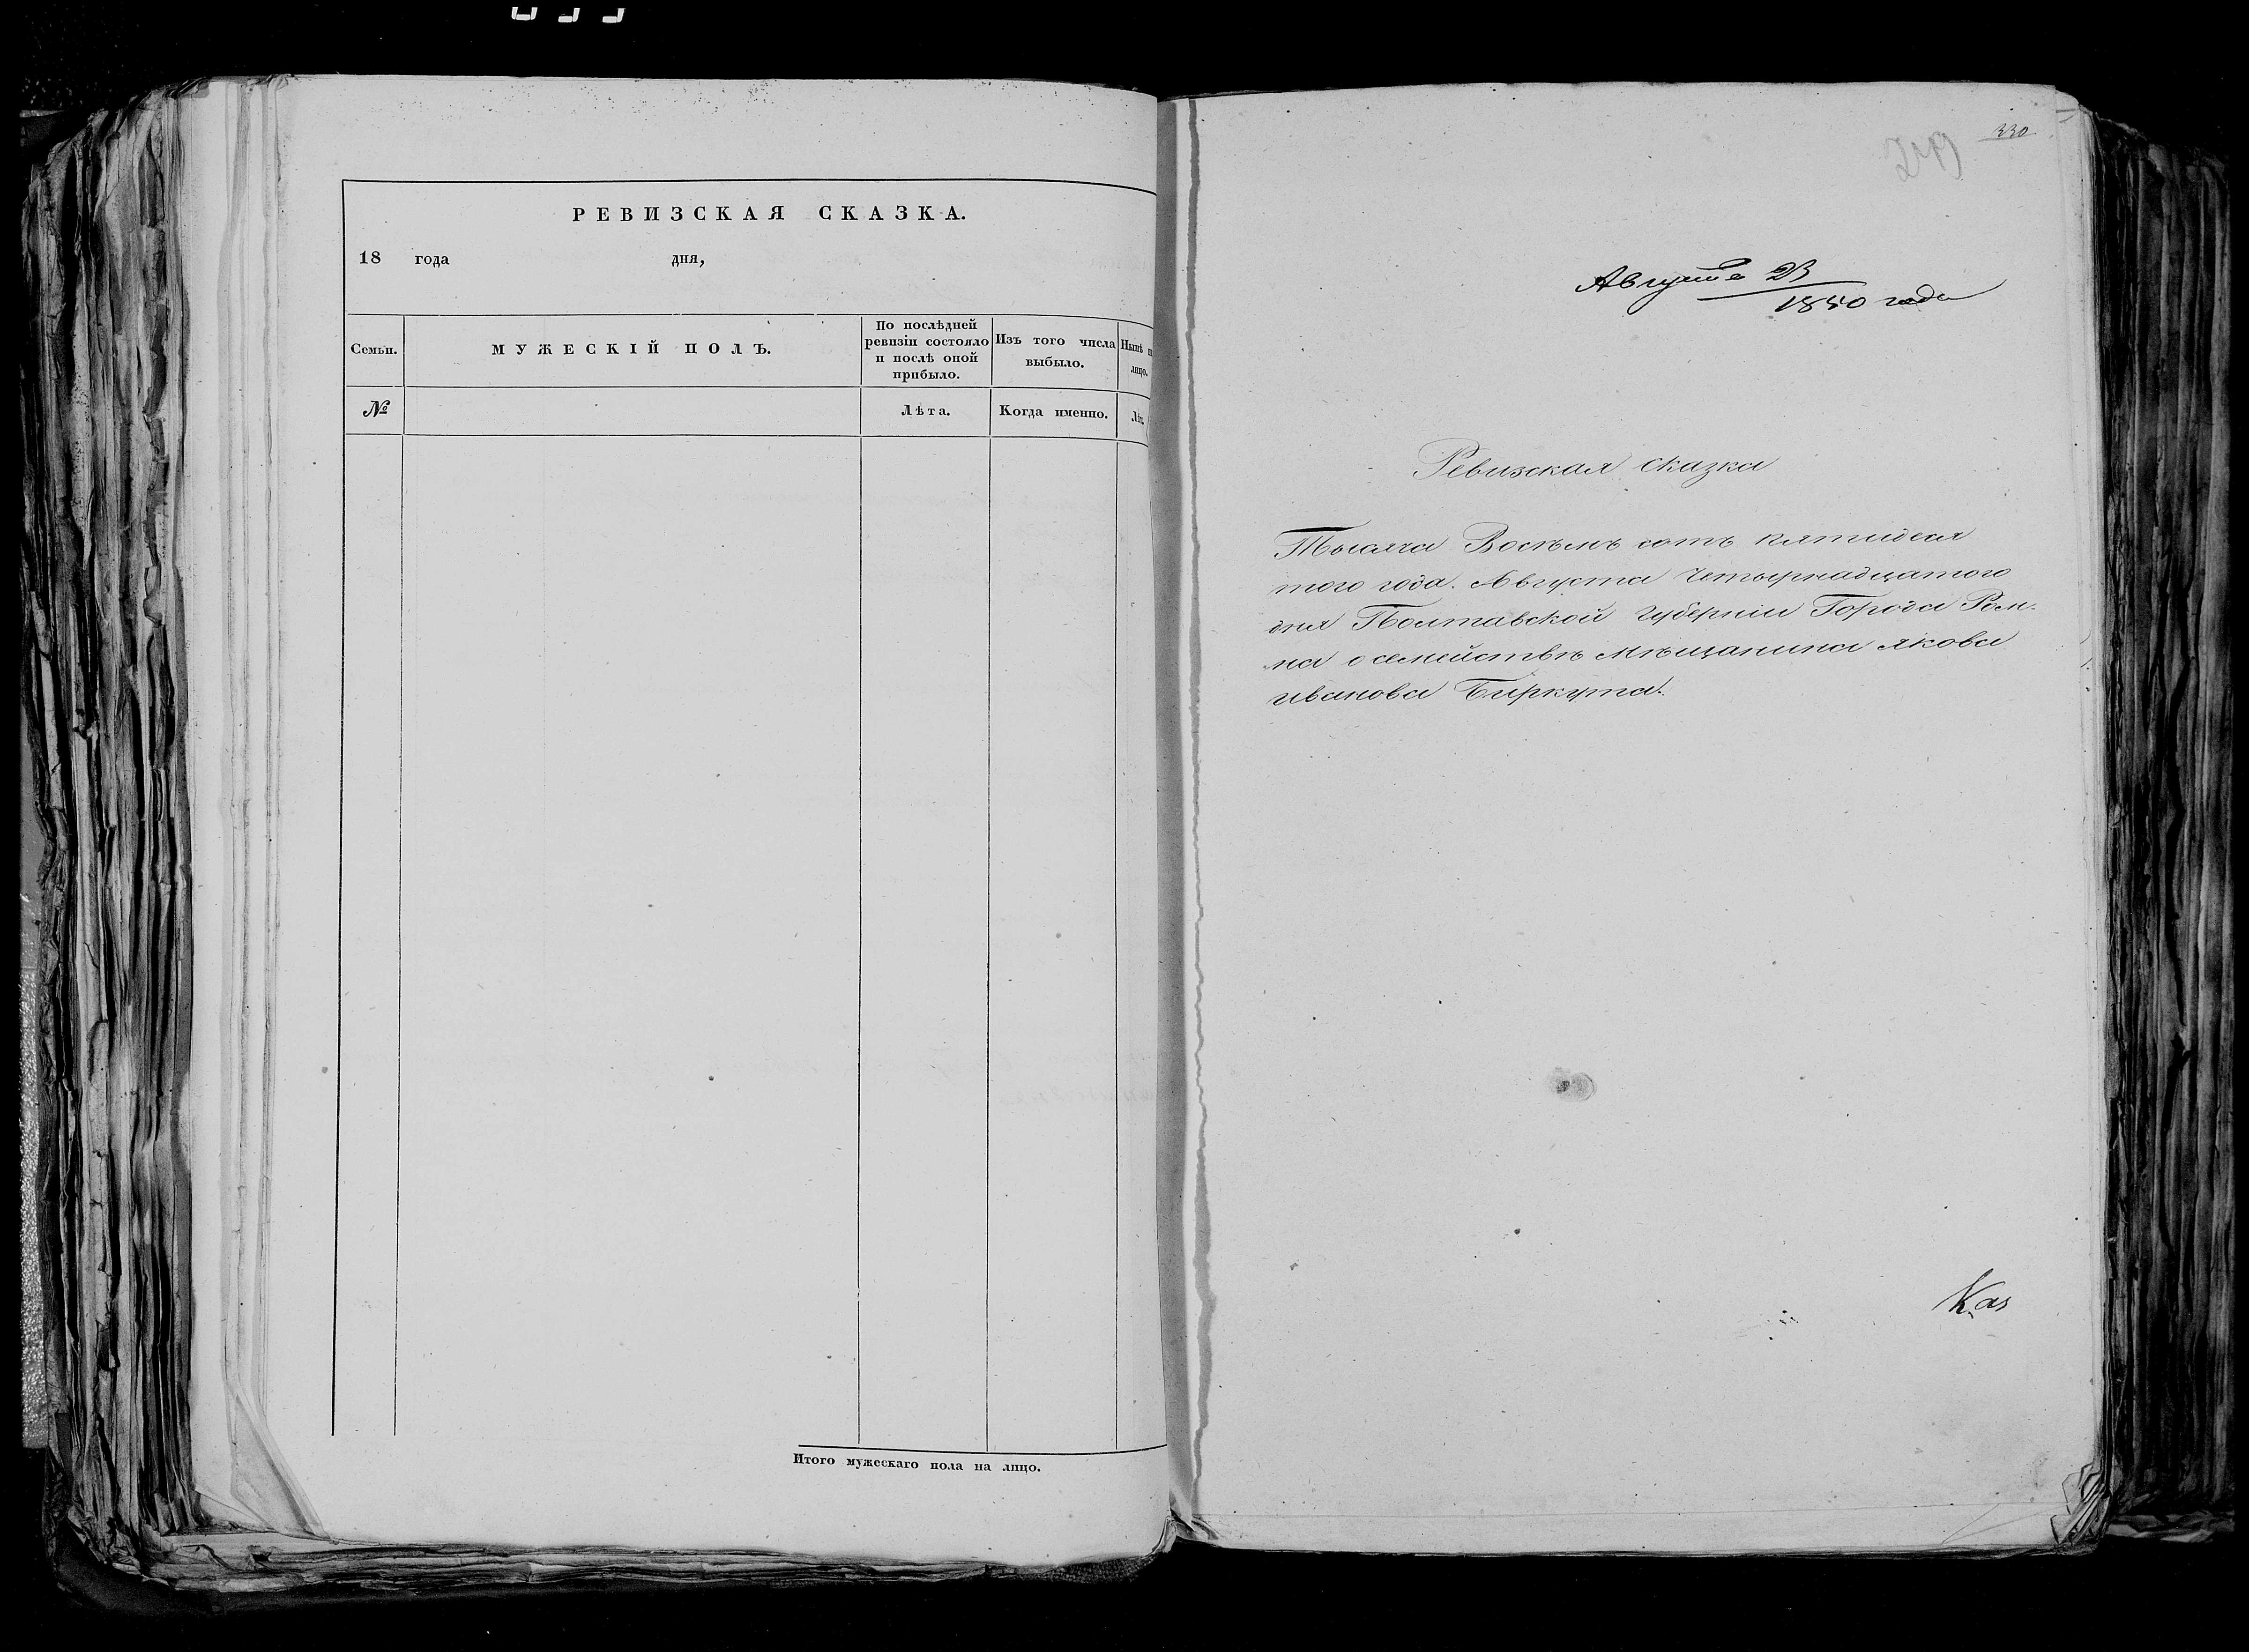 РЕВИЗСКАЯ СКАЗКА.
18 года дня,
Семьи.
МУЖЕСКІЙ ПОЛЪ.
По послѣдней
ревизіи состояло
и послѣ оной
прибыло.
Изъ того числа
выбыло.
Нынѣ на
лицо.
№
Лѣта.
Когда именно.
Лѣт.
Итого мужескаго пола на лицо.
330
Августа 23
1850 года
Ревизская сказка
Тысяча Восѣмъ сотъ пятидеся
того года. Августа Четырнадцатого
дня Полтавской Губерніи Города Ром-
на о семействѣ Мѣщанина Якова
Иванова Биркута.
Каз